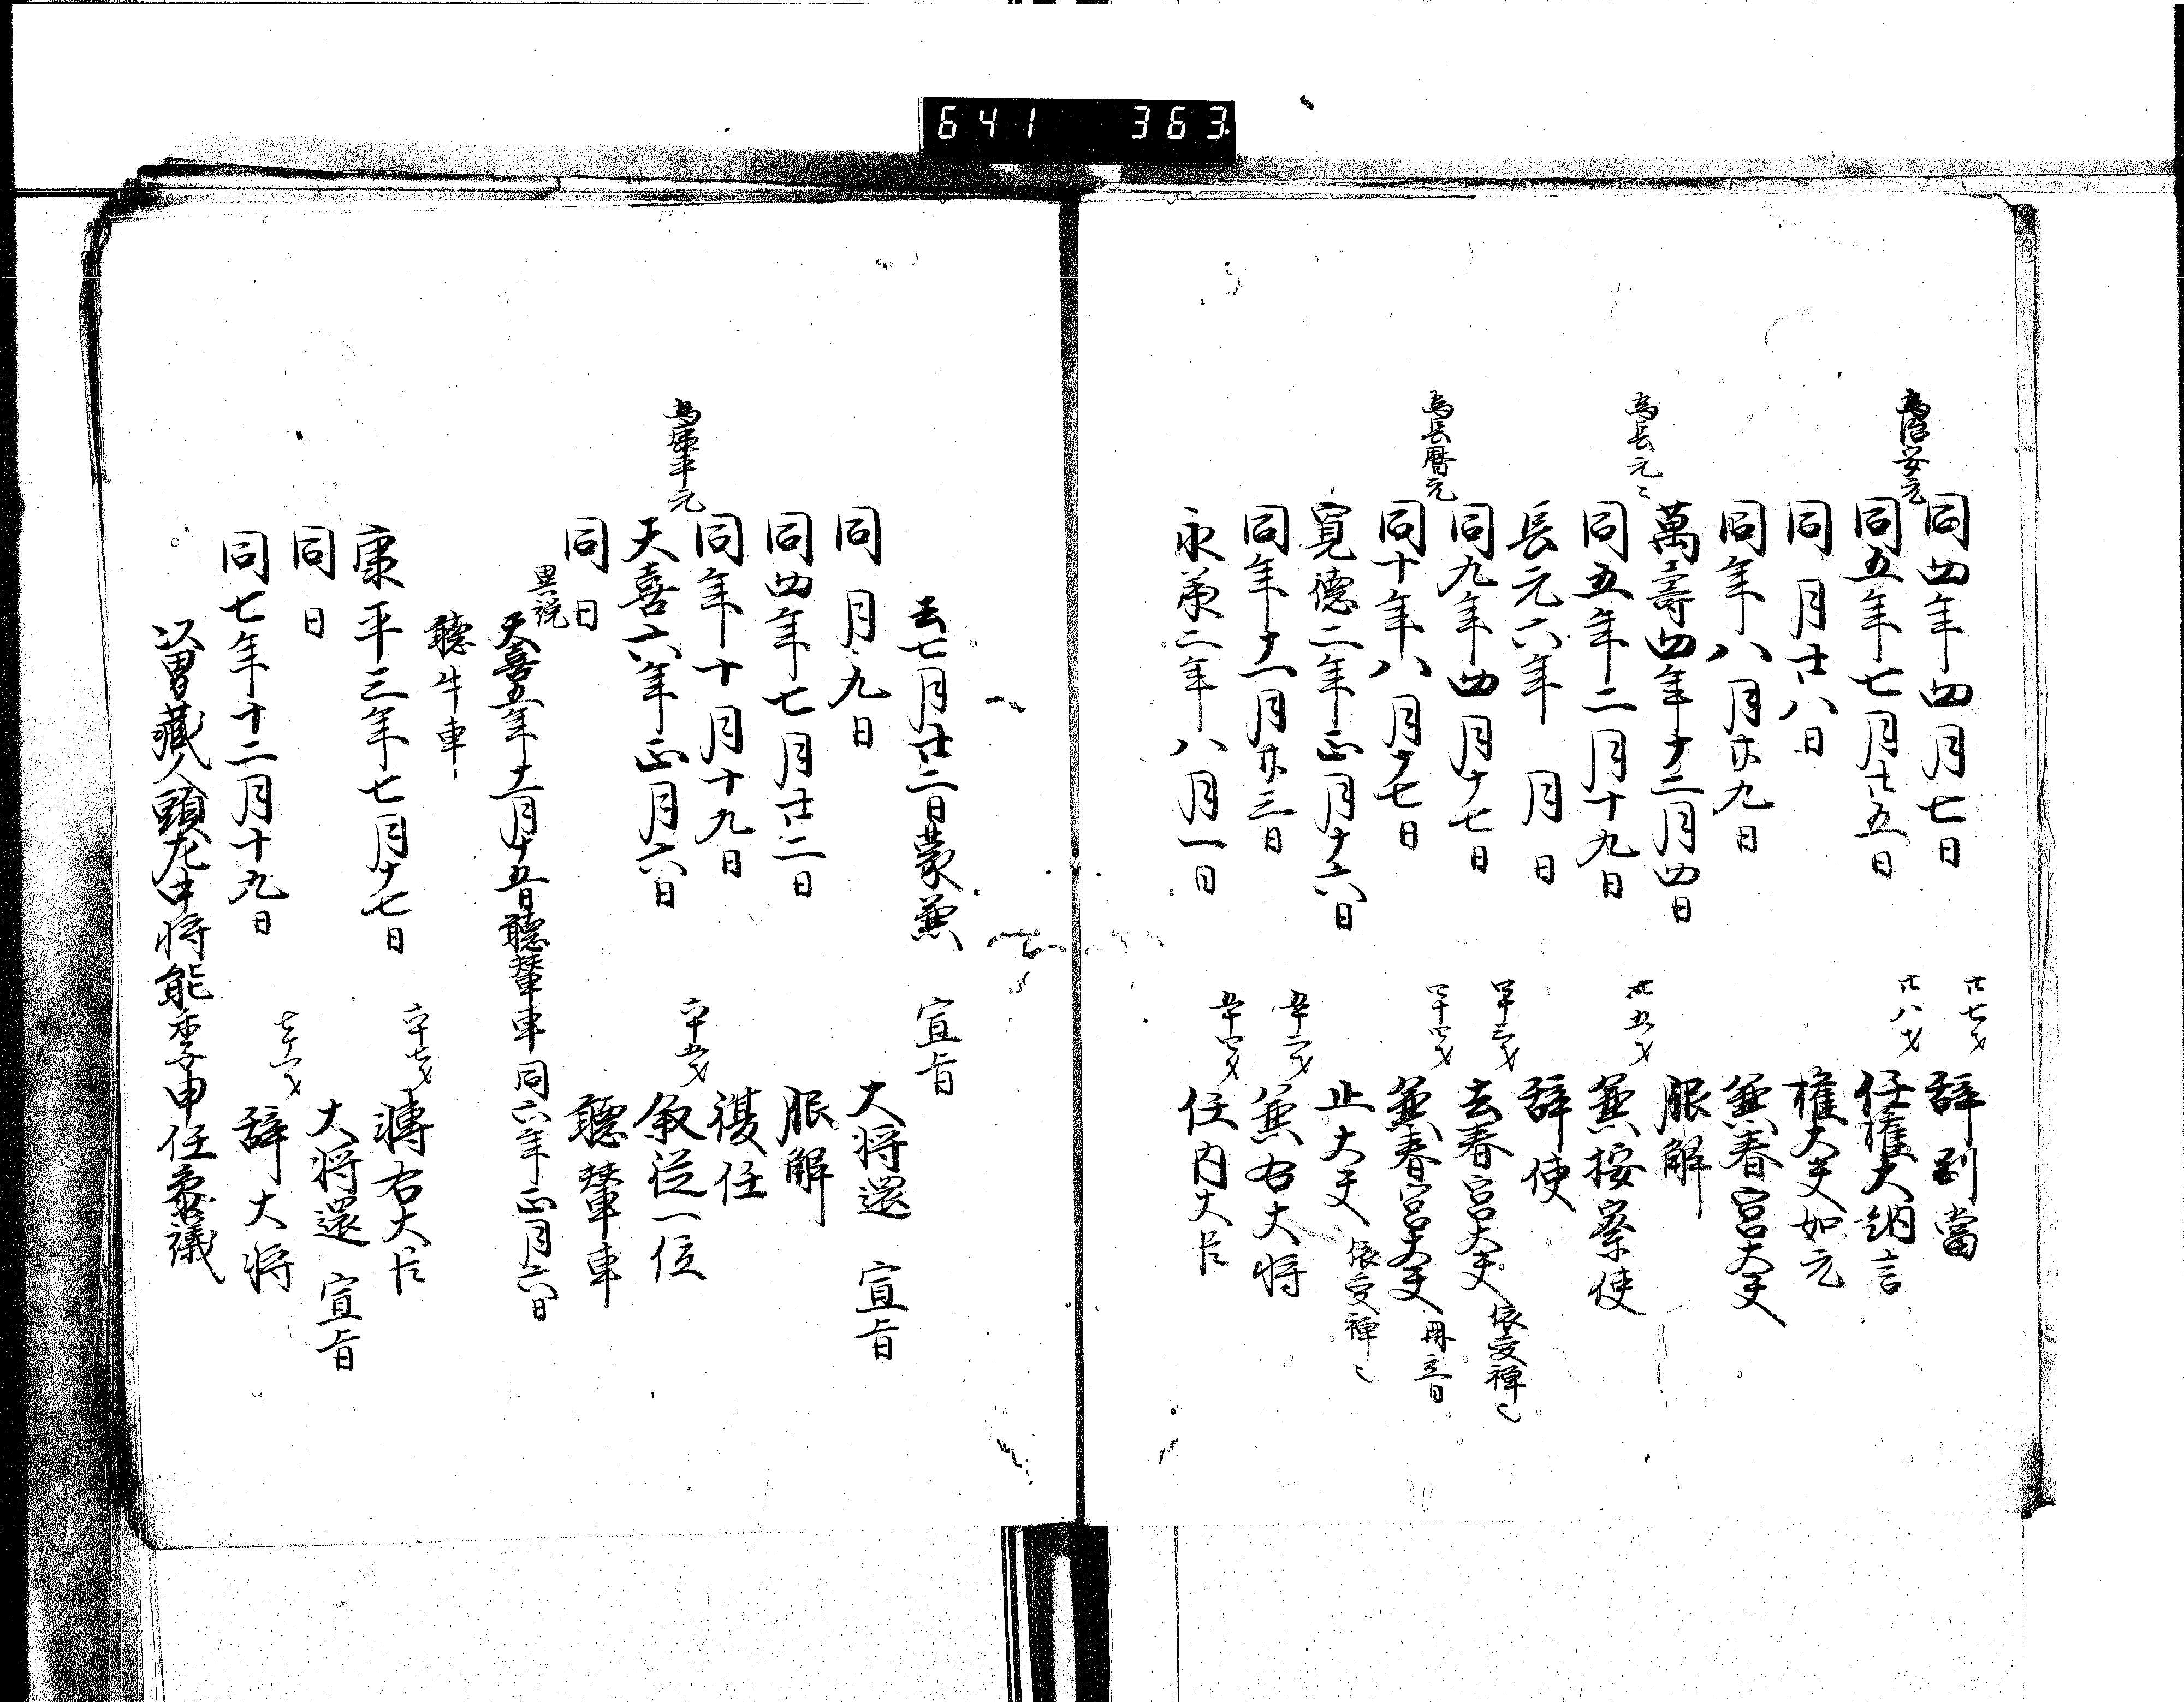 641 363
同四年四月七日 廿七才 辞別當
為治安元
同五年七月廿五日 廿八才 任權大納言
同月廿八日 權大夫如元
同年八月廿九日 兼春宮大夫
萬壽四年十二月四日 服解
為長元々
同五年二月十九日 卅五才 兼按察使
長元六年 月 日 辞使
同九年四月十七日 四十二才 去春宮大夫 依受禅也
為長暦元
同十年八月十七日 四十四才 兼春宮大夫 冊立日
寛德二年正月十六日 止大夫 依受禅也
同年十一月廿三日 五十二才 兼右大将
永承二年八月一日 五十四才 任内大臣
去七月廿二日蒙兼 宣旨
同月九日 大将還 宣旨
同四年七月廿二日 服解
同年十月十九日 復任
為康平元
天喜六年正月六日 六十五才 叙従一位
同日 聽輦車
異説 天喜五年十二月十五日聽輦車同六年正月六日
聽牛車
康平三年七月十七日 六十七才 轉右大臣
同日 大将還 宣旨
同七年十二月十九日 七十一才 辞大将
以男藏人頭左中将能季申任参議